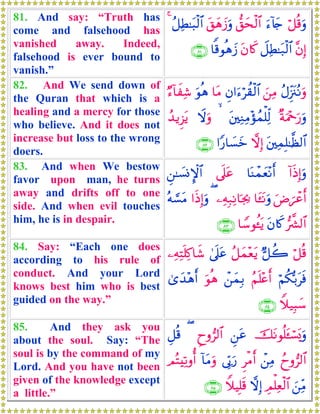 81. And say: “Truth has
come and falsehood has
vanished away. Indeed,
falsehood is ever bound to
vanish.”
وَقُلْ جَآءَ ٱلْحَقُّ وَزَهَقَ ٱلْبَـٰطِلُ ۚ
إِنَّ ٱلْبَـٰطِلَ كَانَ زَهُوقًا ﴿٨١﴾
82. And We send down of
the Quran that which is a
healing and a mercy for those
who believe. And it does not
increase but loss to the wrong
doers.
وَنُنَزِّلُ مِنَ ٱلْقُرْءَانِ مَا هُوَ شِفَآءٌ
وَرَحْمَةٌ لِّلْمُؤْمِنِينَ ۙ وَلَا يَزِيدُ
ٱلظَّـٰلِمِينَ إِلَّا خَسَارًا ﴿٨٢﴾
83. And when We bestow
favor upon man, he turns
away and drifts off to one
side. And when evil touches
him, he is in despair.
وَإِذَآ أَنْعَمْنَا عَلَى ٱلْإِنسَـٰنِ
أَعْرَضَ وَنَـَٔا بِجَانِبِهِۦ ۖ وَإِذَا مَسَّهُ
ٱلشَّرُّ كَانَ يَـُٔوسًا ﴿٨٣﴾
84. Say: “Each one does
according to his rule of
conduct. And your Lord
knows best him who is best
guided on the way.”
قُلْ كُلٌّ يَعْمَلُ عَلَىٰ شَاكِلَتِهِۦ
فَرَبُّكُمْ أَعْلَمُ بِمَنْ هُوَ أَهْدَىٰ
سَبِيلًا ﴿٨٤﴾
85. And they ask you
about the soul. Say: “The
soul is by the command of my
Lord. And you have not been
given of the knowledge except
a little.”
وَيَسْـَٔلُونَكَ عَنِ ٱلرُّوحِ ۖ قُلِ
ٱلرُّوحُ مِنْ أَمْرِ رَبِّى وَمَآ أُوتِيتُم
مِّنَ ٱلْعِلْمِ إِلَّا قَلِيلًا ﴿٨٥﴾